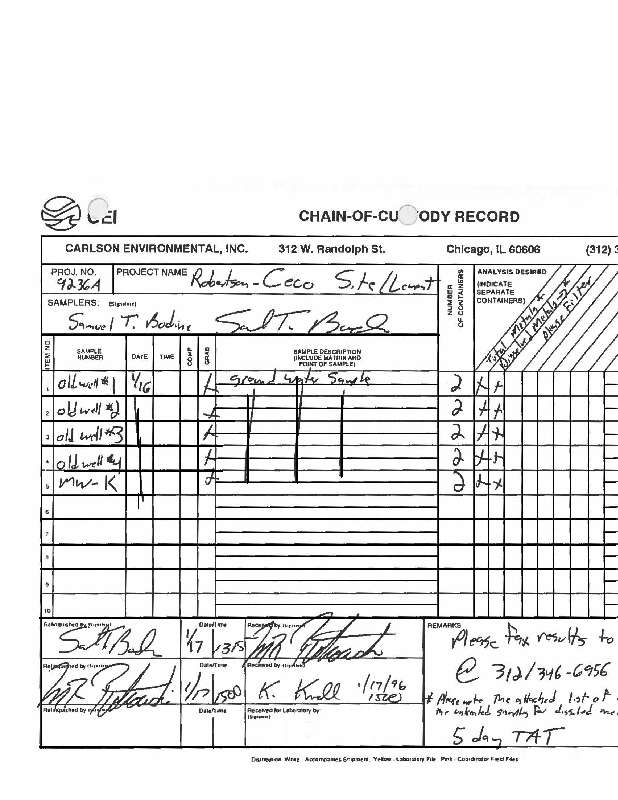 CEI
CHAIN-OF-CUSTODY RECORD
CARLSON ENVIRONMENTAL, INC. 312 W. Randolph St. Chicago, IL 60606 (312) 3
PROJ. NO. PROJECT NAME
9236A Robertson-Ceco Site/Lemont
SAMPLERS: (Signature)
Samuel T. Bodine
NUMBER OF CONTAINERS
ANALYSIS DESIRED
(INDICATE
SEPARATE
CONTAINERS)
Total Metals *
Dissolved Metals *
Please Filter
ITEM NO. SAMPLE NUMBER DATE TIME COMP. GRAB SAMPLE DESCRIPTION (INCLUDE MATRIX AND POINT OF SAMPLE)
1 old well #1 1/16 + Ground water Sample 2 + +
2 old well #2 + 2 + +
3 old well #3 + 2 + +
4 old well #4 + 2 + +
5 MW-K + 2 + +
6
7
8
9
10
Relinquished by (Signature) Date/Time Received by (Signature)
1/17 1315
Relinquished by (Signature) Date/Time Received by (Signature)
1/17 1500 K. Knoll 1/17/96
1500
Relinquished by (Signature) Date/Time Received for Laboratory by
(Signature)
REMARKS
Please Fax results to
@ 312/346-6956
* Please note the attached list of
the dissolved
5 day TAT
Distribution: White - Accompanies Shipment, Yellow - Laboratory File, Pink - Coordinator Field Files